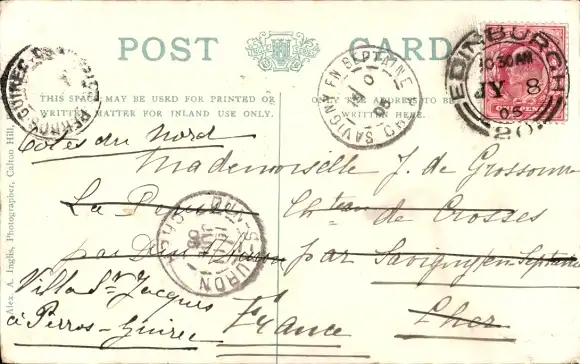 POST CARD
THIS SPACE MAY BE USED FOR PRINTED OR
WRITTEN MATTER FOR INLAND USE ONLY.
ONLY THE ADDRESS TO BE
WRITTEN HERE.
Alex. A. Inglis, Photographer, Calton Hill,
EDINBURGH
10.30AM
JY 8
05
20
SAVIGNY EN SEPTAINE
PERROS-GUIREC
Côtes du Nord
Mademoiselle J. de Grossouvre
La
Chteau de Crosses
par
par Savigny en Septaine
Villa St Jacques
à Perros-Guirec
France
Cher